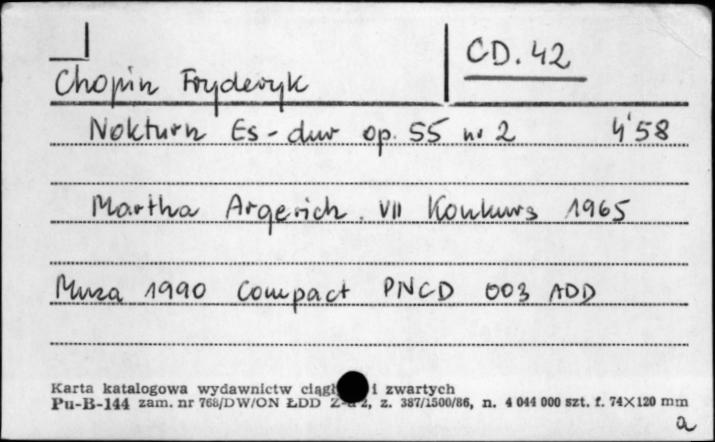 CD. 42
Chopin Fryderyk
Nokturn Es-dur op. 55 nr 2 4'58
Martha Argerich. VII Konkurs 1965
Muza 1990 Compact PNCD 003 ADD
Karta katalogowa wydawnictw i zwartych
Pu-B-144 zam. nr 768/DW/ON ŁDD z. 387/1500/86, n. 4 044 000 szt. f. 74×120 mm
a